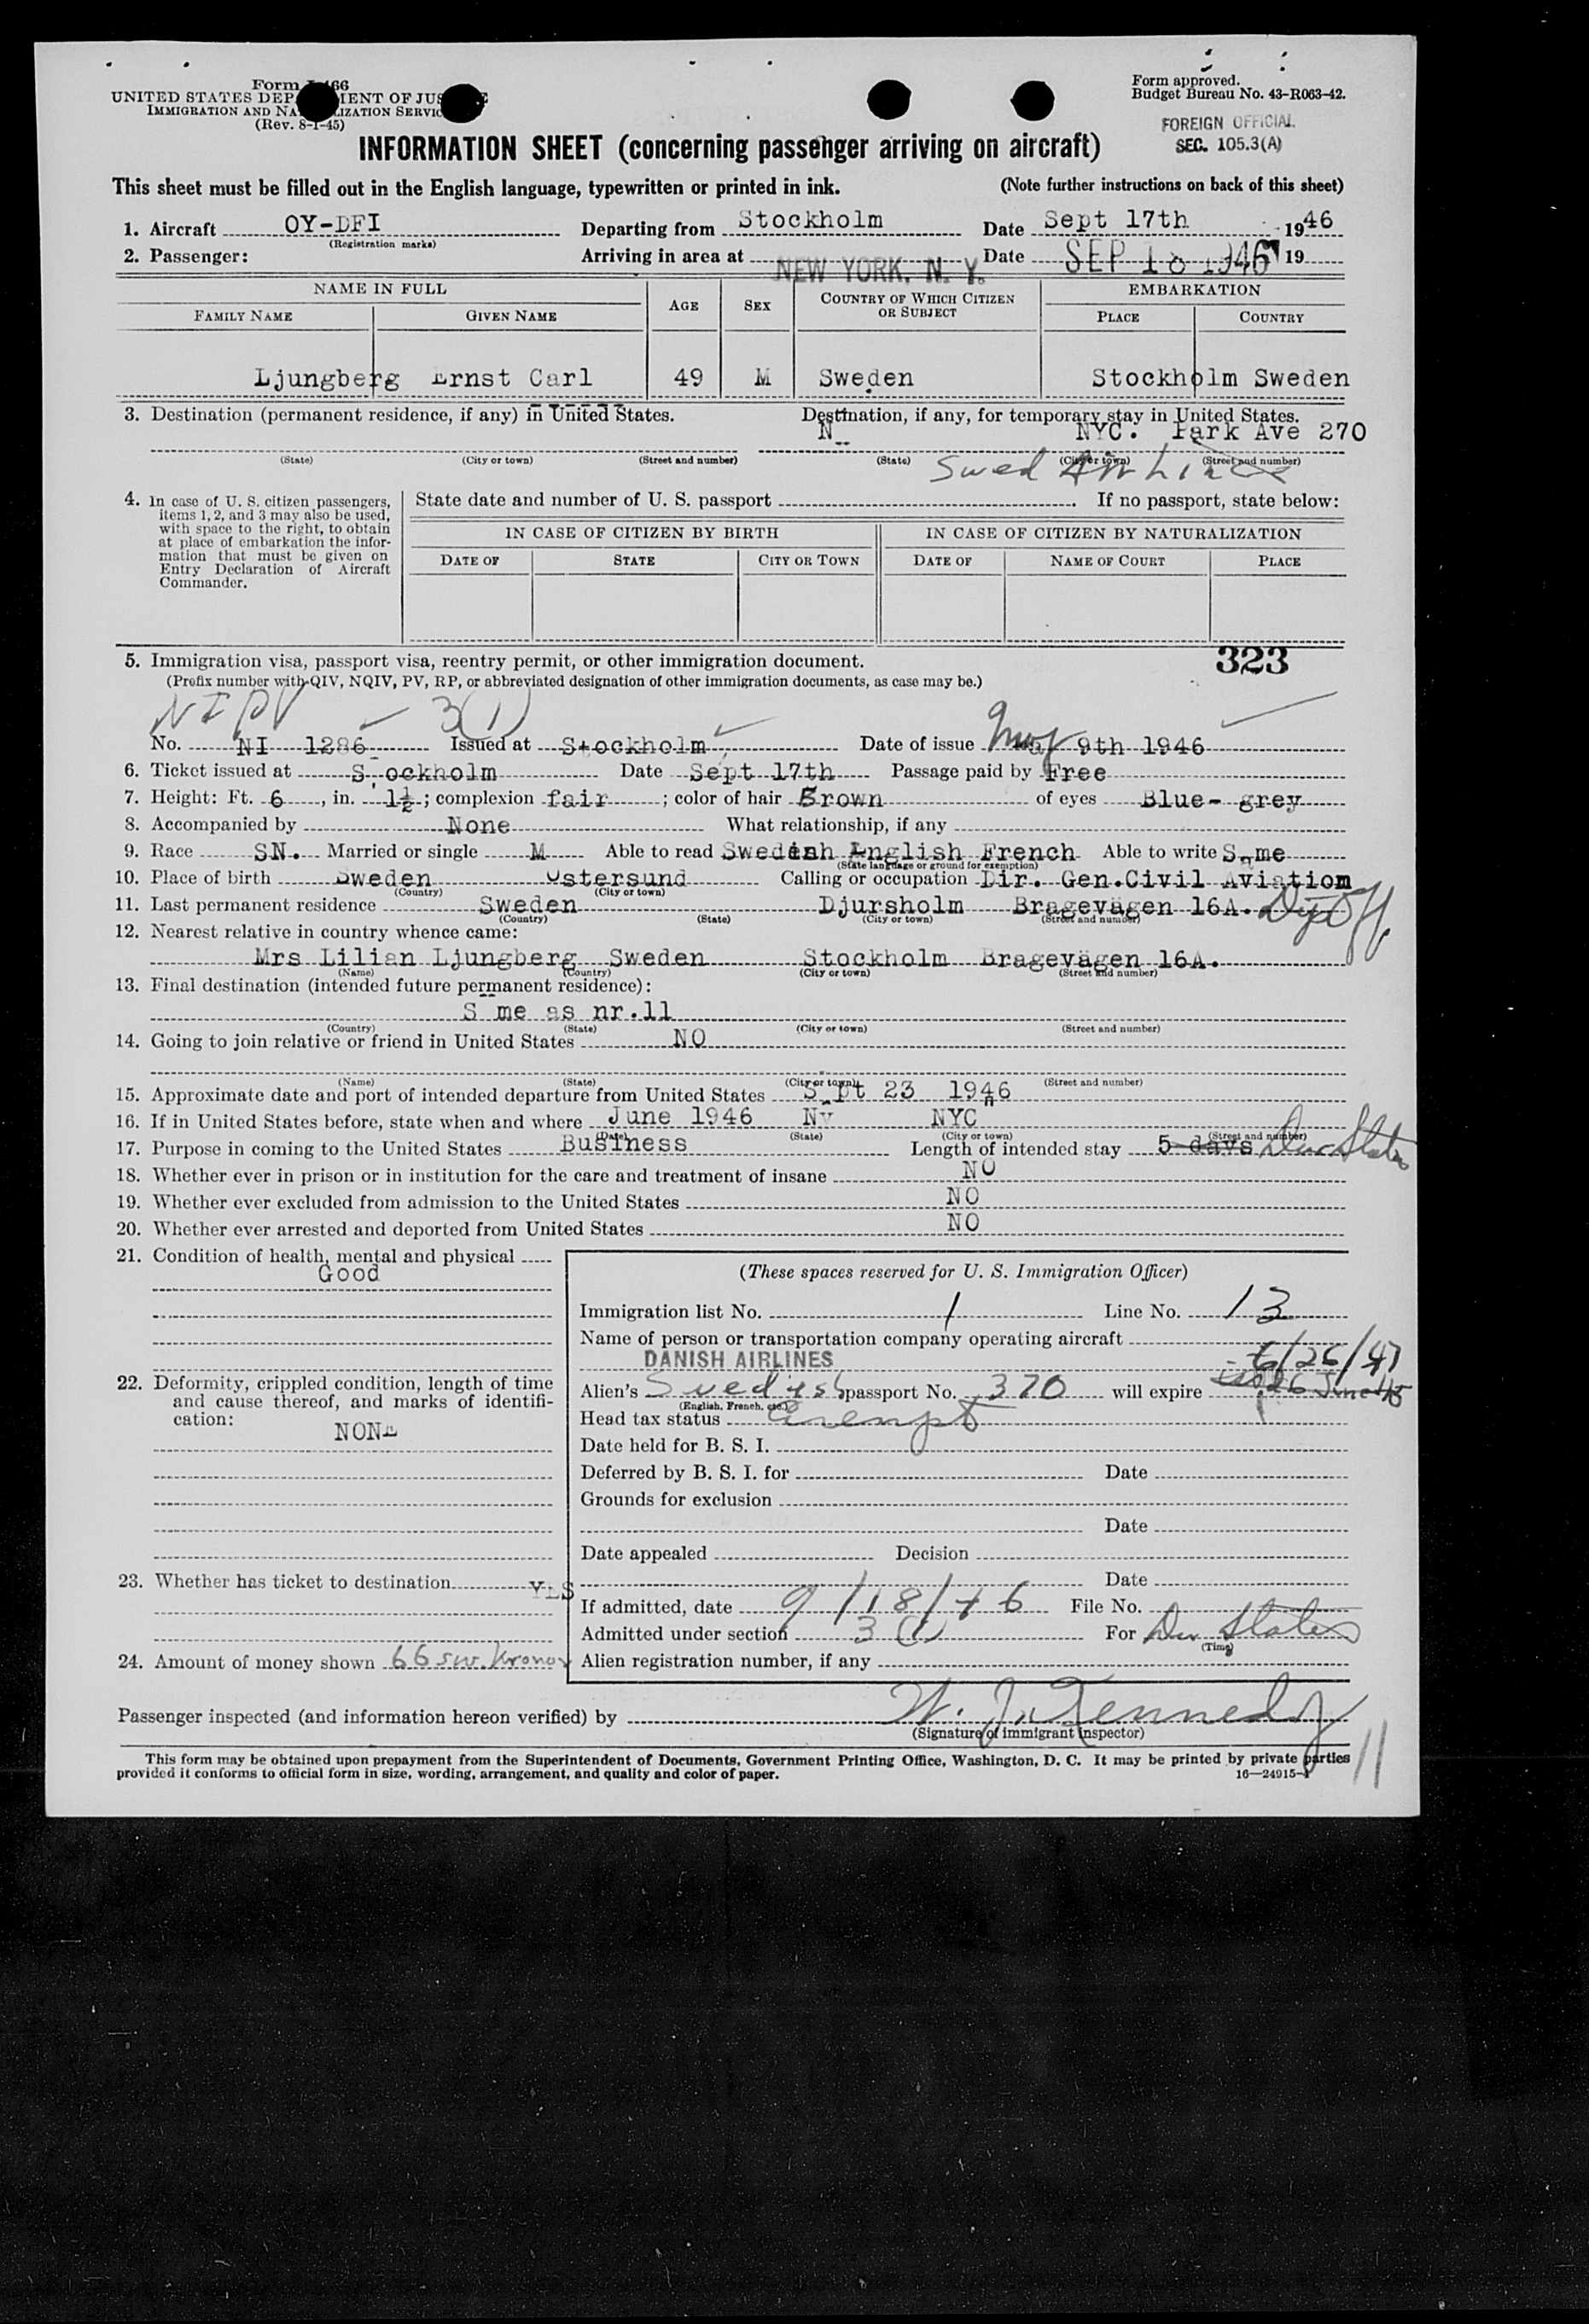 Form I-466
UNITED STATES DEPARTMENT OF JUSTICE
IMMIGRATION AND NATURALIZATION SERVICE
(Rev. 8-1-45)
Form approved.
Budget Bureau No. 43-R063-42.
FOREIGN OFFICIAL
SEC. 105.3(A)
INFORMATION SHEET (concerning passenger arriving on aircraft)
This sheet must be filled out in the English language, typewritten or printed in ink. (Note further instructions on back of this sheet)
1. Aircraft OY-DFI Departing from Stockholm Date Sept 17th 1946
(Registration marks)
2. Passenger: Arriving in area at NEW YORK, N. Y. Date SEP 18 1946 19
NAME IN FULL AGE SEX COUNTRY OF WHICH CITIZEN OR SUBJECT EMBARKATION
FAMILY NAME GIVEN NAME PLACE COUNTRY
Ljungberg Ernst Carl 49 M Sweden Stockholm Sweden
3. Destination (permanent residence, if any) in United States. Destination, if any, for temporary stay in United States.
N NYC. Park Ave 270
(State) (City or town) (Street and number) (State) (City or town) (Street and number)
Swed Air Lines
4. In case of U. S. citizen passengers, items 1, 2, and 3 may also be used, with space to the right, to obtain at place of embarkation the information that must be given on Entry Declaration of Aircraft Commander.
State date and number of U. S. passport If no passport, state below:
IN CASE OF CITIZEN BY BIRTH IN CASE OF CITIZEN BY NATURALIZATION
DATE OF STATE CITY OR TOWN DATE OF NAME OF COURT PLACE
5. Immigration visa, passport visa, reentry permit, or other immigration document. 323
(Prefix number with QIV, NQIV, PV, RP, or abbreviated designation of other immigration documents, as case may be.)
NIPV 3(1)
No. NI 1286 Issued at Stockholm Date of issue May 9th 1946
6. Ticket issued at S ockholm Date Sept 17th Passage paid by Free
7. Height: Ft. 6, in. 1½; complexion fair; color of hair Brown of eyes Blue- grey
8. Accompanied by None What relationship, if any
9. Race SN. Married or single M Able to read Swedish English French Able to write Same
(State language or ground for exemption)
10. Place of birth Sweden Ostersund Calling or occupation Dir. Gen.Civil Aviation
(Country) (City or town)
11. Last permanent residence Sweden Djursholm Bragevägen 16A.
(Country) (State) (City or town) (Street and number)
12. Nearest relative in country whence came:
Mrs Lilian Ljungberg Sweden Stockholm Bragevägen 16A.
(Name) (Country) (City or town) (Street and number)
13. Final destination (intended future permanent residence):
S me as nr.11
(Country) (State) (City or town) (Street and number)
14. Going to join relative or friend in United States NO
(Name) (State) (City or town) (Street and number)
15. Approximate date and port of intended departure from United States Sept 23 1946
16. If in United States before, state when and where June 1946 Ny NYC
(Date) (State) (City or town) (Street and number)
17. Purpose in coming to the United States Business Length of intended stay 5 days Dur Status
18. Whether ever in prison or in institution for the care and treatment of insane NO
19. Whether ever excluded from admission to the United States NO
20. Whether ever arrested and deported from United States NO
21. Condition of health, mental and physical
Good
(These spaces reserved for U. S. Immigration Officer)
Immigration list No. 1 Line No. 13
Name of person or transportation company operating aircraft
DANISH AIRLINES 6/26/47
22. Deformity, crippled condition, length of time and cause thereof, and marks of identification:
NONE
Alien's Swedish passport No. 370 will expire
(English, French, etc.)
Head tax status Exempt
Date held for B. S. I.
Deferred by B. S. I. for Date
Grounds for exclusion
Date
Date appealed Decision
23. Whether has ticket to destination YES
Date
If admitted, date 9/18/46 File No.
Admitted under section 3(1) For Dur Status
(Time)
24. Amount of money shown 66 sw. Kronor
Alien registration number, if any
Passenger inspected (and information hereon verified) by W. J. Kennedy
(Signature of immigrant inspector)
This form may be obtained upon prepayment from the Superintendent of Documents, Government Printing Office, Washington, D. C. It may be printed by private parties
provided it conforms to official form in size, wording, arrangement, and quality and color of paper. 16—24915-1
11